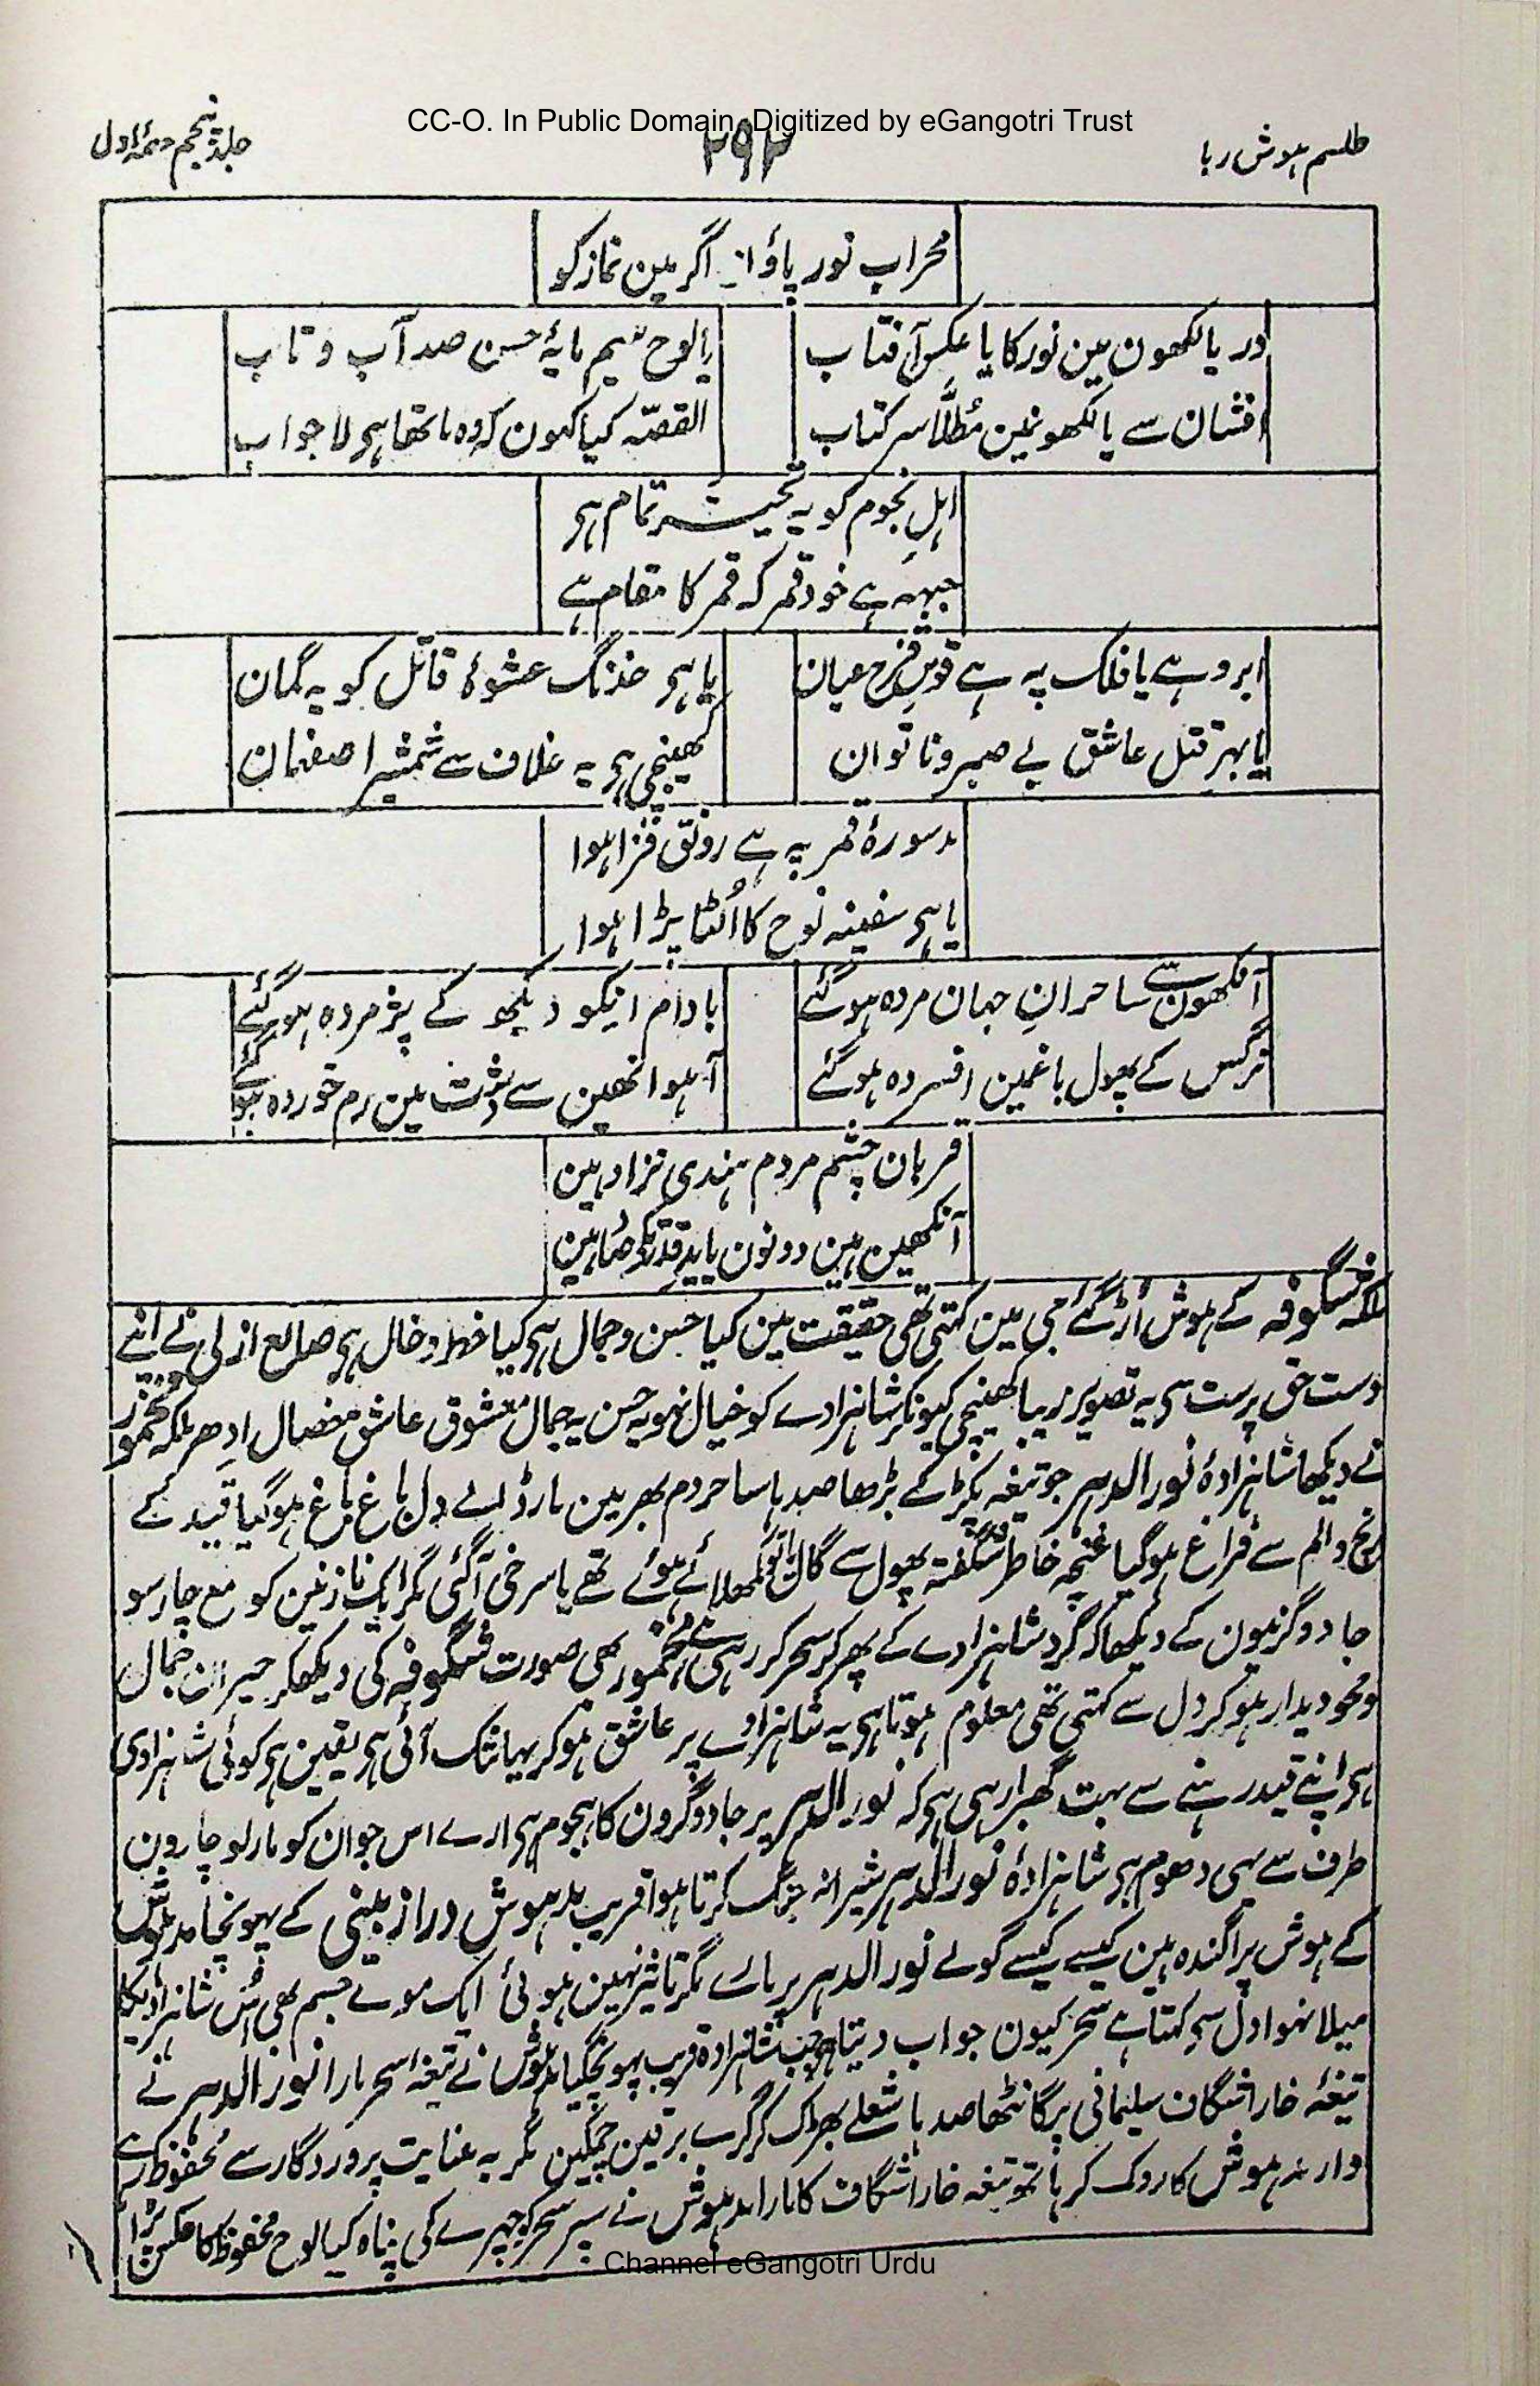 CC-O. In Public Domain. Digitized by eGangotri Trust
طلسم ہوش ربا
۲۹۲
جلد پنجم حصۂ اول
محراب نور پاؤں اگر مین نماز کو
دریا لکھون مین نور کا یا عکس آفتاب
یا لوح سیم مایۂ حسن صد آب و تاب
افشان سے یا لکھونمین مُطلَّا سر کتاب
القصّہ کیا کہون کہ وہ ماتھا ہی لاجواب
اہلِ نجوم کو یہ تحیر تمام ہی
جبہہ ہے خود قمر کہ قمر کا مقام ہے
ابرو ہے یا فلک پہ ہے قوسِ قزح عیان
یا ہی خدنگ عشوۂ قاتل کو یہ گمان
یا بہر قتل عاشق بے صبر و ناتوان
کھینچی ہی یہ غلاف سے شمشیر اصفہان
مد سورۂ قمر پہ ہے رونق فزا ہوا
یا ہی سفینہ نوح کا اُلٹا پڑا ہوا
آنکھون سے ساحرانِ جہان مردہ ہوگئے
بادام انکو دیکھ کے پژمردہ ہوگئے
نرگس کے پھول باغمین افسردہ ہوگئے
آہو انھین سے دشت مین رم خوردہ ہوگئے
قربان چشم مردم ہندی نژاد ہین
آنکھین ہین دونون یا ید قدرت کے صاد ہین
ملکہ شگوفہ کے ہوش اُڑ گئے جی مین کہتی تھی حقیقت مین کیا حسن و جمال ہی کیا خط و خال ہی صانع ازلی نے اپنے
دست حق پرست سی یہ تصویر زیبا کھینچی کیونکر شاہزادے کو خیال نہو یہ حسن یہ جمال معشوق عاشق خصال ادھر ملکہ مخمور
نے دیکھا شاہزادۂ نورالدہر جو تیغہ پکڑ کے بڑھا صدہا ساحر دم بھر مین مار ڈالے دل باغ باغ ہوگیا قید کے
رنج و الم سے فراغ ہوگیا غنچہ خاطر شگفتہ پھول سے گال تو کمھلائے ہوئے تھے یا سرخی آگئی مگر ایک نازنین کو مع چار سو
جادوگرنیون کے دیکھا کہ گرد شاہزادے کے پھر کر سحر کر رہی ہے مخمور بھی صورت شگوفہ کی دیکھکر حیران جمال
و محو دیدار ہوکر دل سے کہتی تھی معلوم ہوتا ہی یہ شاہزادے پر عاشق ہوکر یہانتک آئی ہی یقین ہی کوئی شاہزادی
ہی اپنے قید رہنے سے بہت گھبرا رہی ہی کہ نورالدہر پر جادوگرون کا ہجوم ہی ارے اس جوان کو مار لو چارون
طرف سے یہی دھوم ہی شاہزادۂ نورالدہر شیرانہ جنگ کرتا ہوا قریب مدہوش دراز بینی کے پہونچا مدہوش
کے ہوش پراگندہ ہین کیسے کیسے گولے نورالدہر پر مارے مگر تاثیر نہین ہوئی ایک موے جسم بھی اس شاہزادیکا
میلا نہوا دل سی کہتا ہے سحر کیون جواب دیتا ہے جب شاہزادہ قریب پہونچگیا مدہوش نے تیغہ سحر مارا نورالدہر نے
تیغۂ خارا شگاف سلیمانی پر گانٹھا صدہا شعلے بھڑک کر گرے برقین چمکین مگر بہ عنایت پروردگار سے محفوظ رہے
وار مدہوش کا روک کر ہاتھ تیغہ خارا شگاف کا مارا مدہوش نے سپر سحر کو چہرے کی پناہ کیا لوح محفوظ کا عکس پڑا
Channel eGangotri Urdu